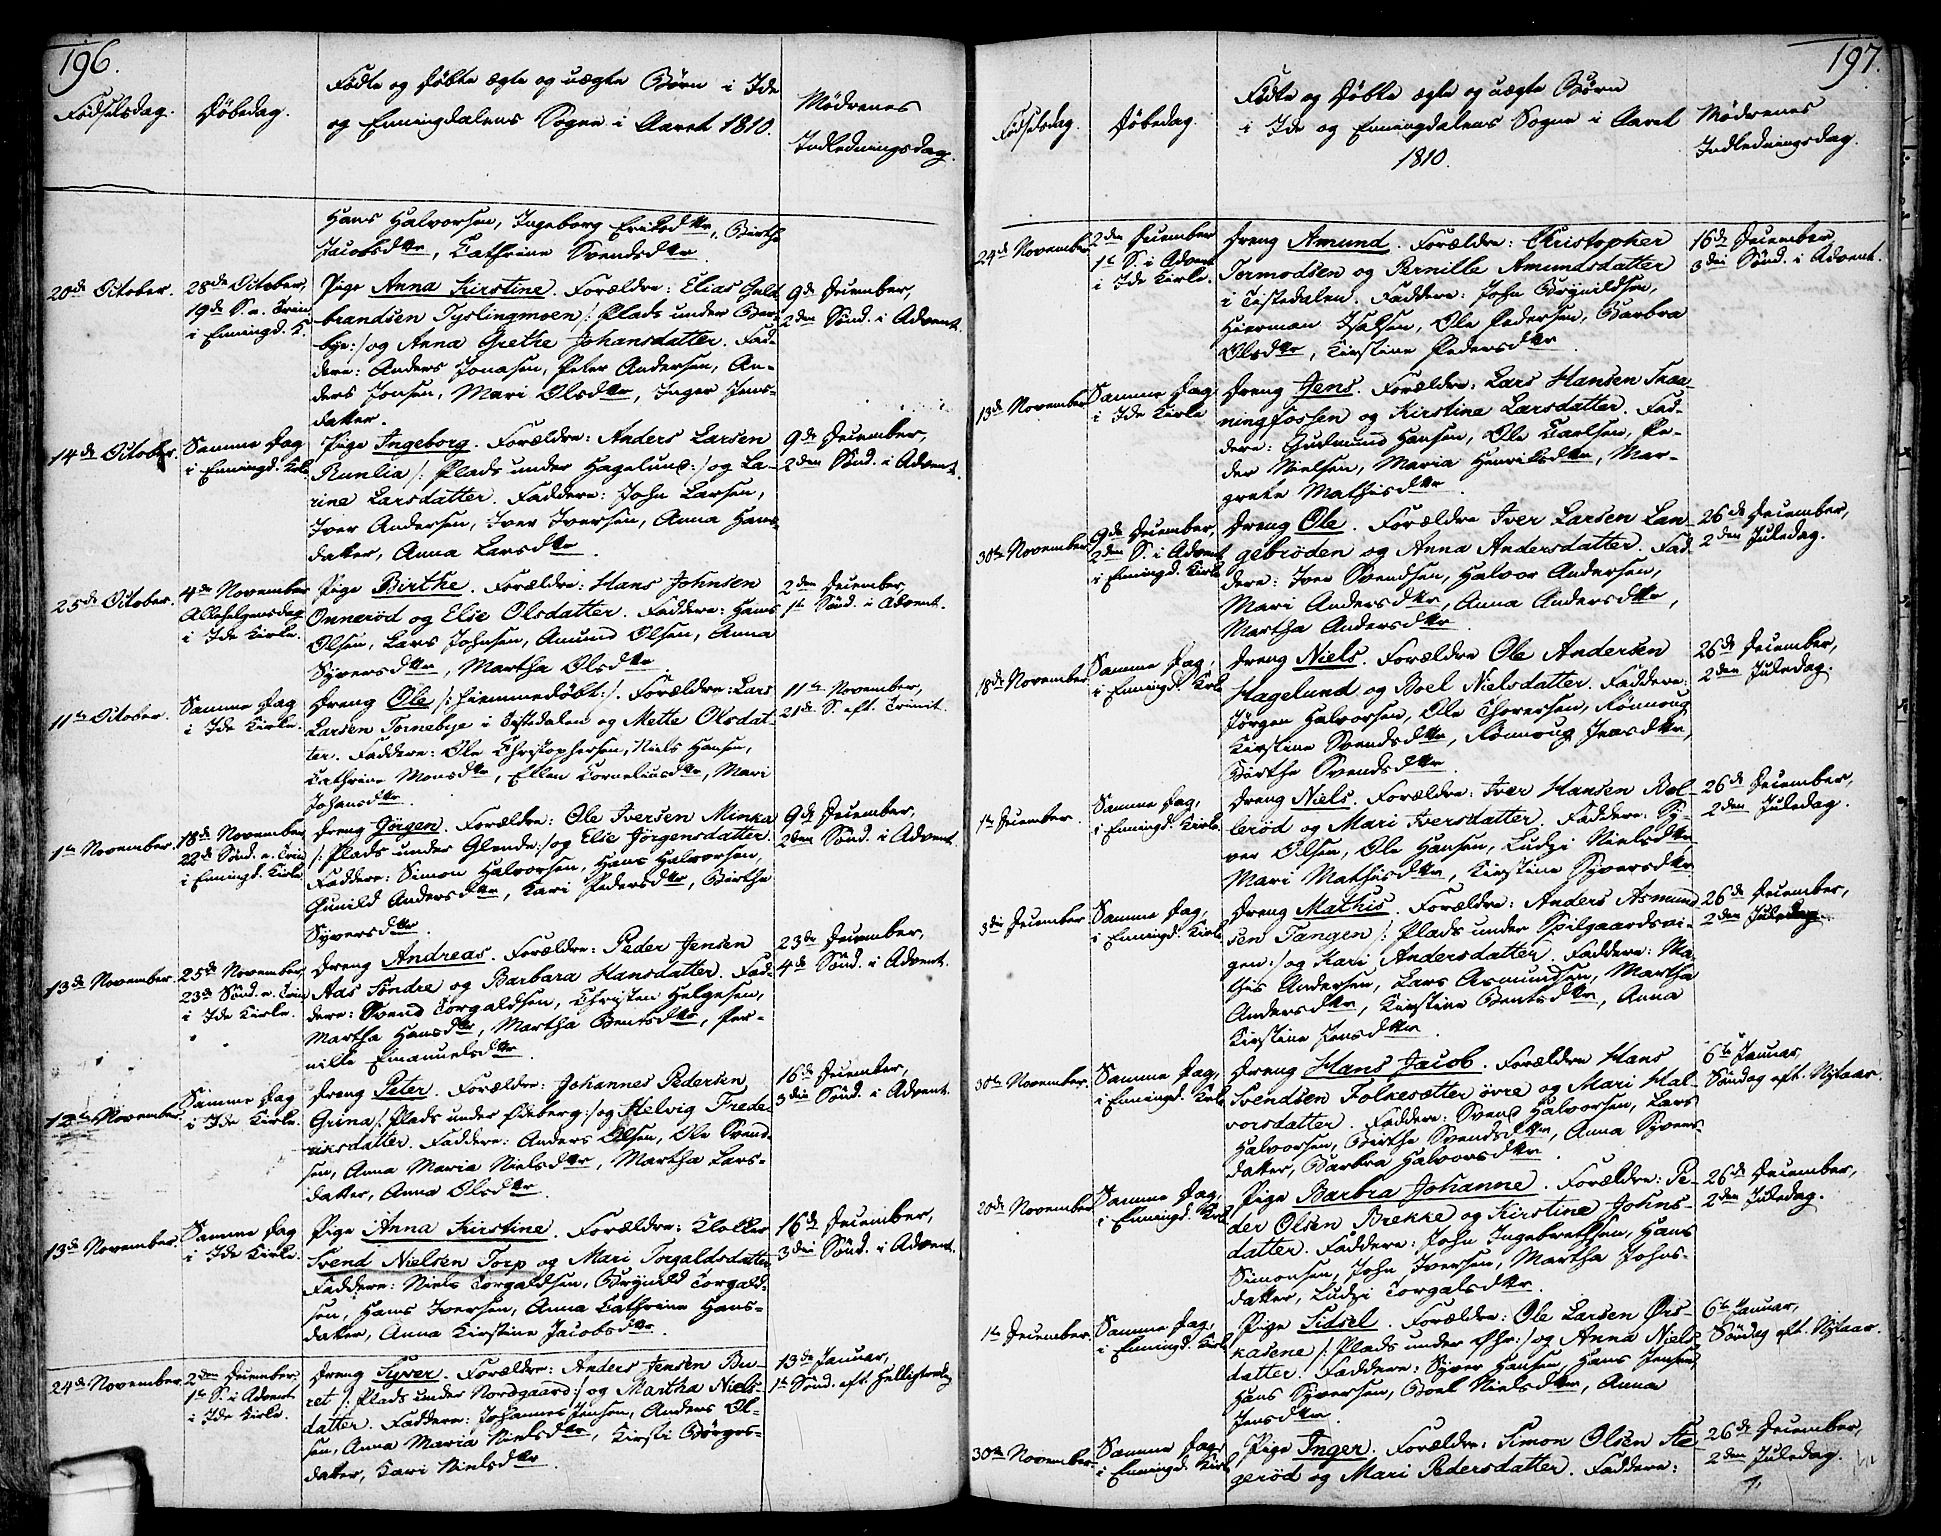 196.
Födselsdag.
Döbedag.
Födte og Döbte ægte og uægte Börn i Ide
og Enningdalens Sogne i Aaret 1810.
Mödrenes
Indledningsdag.
Hans Halvorsen, Ingeborg Eriksdtr, Birthe
Jacobsdtr, Cathrine Svendsdtr.
20de October.
28de October,
19de S. e. Trin.
i Enningd. K.
Pige Anna Kirstine. Forældre: Elias Guld-
brandsen Tyslingmoen /: Plads under Ber-
bye:/ og Anna Grethe Johansdatter. Fad-
dere: Anders Jonasen, Peter Andersen, An-
ders Jonsen, Mari Olsdtr, Inger Jens-
datter.
9de December,
2den Sönd. i Advent.
14de October.
Samme Dag
i Enningd. Kirke.
Pige Ingeborg. Forældre: Anders Larsen
Runlia /: Plads under Hagelund:/ og La-
rine Larsdatter. Faddere: John Larsen,
Iver Andersen, Iver Iversen, Anna Hans-
datter, Anna Larsdtr.
9de December,
2den Sönd. i Advent.
25de October.
4de November
Allehelgensdag
i Ide Kirke.
Pige Birthe. Forældre: Hans Johnsen
Onneröd og Elie Olsdatter. Faddere: Hans
Olsen, Lars Johnsen, Amund Olsen, Anna
Syversdtr, Martha Olsdtr.
2den December,
1te Sönd. i Advent.
11te October.
Samme Dag
i Ide Kirke.
Dreng Ole /: hiemmedöbt:/. Forældre: Lars
Larsen Tornebye i Tistedalen og Mette Olsdat-
ter. Faddere: Ole Christophersen, Niels Hansen,
Cathrine Monsdtr, Ellen Corneliusdtr, Mari
Johansdtr.
11te November,
21de S. eft. Trinit.
1te November.
18de November,
22de Sönd. e. Trin.
i Enningd. Kirke.
Dreng Jörgen. Forældre: Ole Iversen Minka
/: Plads under Glende:/ og Elie Jörgensdatter.
Faddere: Simon Halvorsen, Hans Halvorsen,
Gunild Andersdtr, Kari Pedersdtr, Birthe
Syversdtr.
9de December,
2den Sönd. i Advent.
13de November.
25de November,
23de Sönd. e. Trin.
i Ide Kirke.
Dreng Andreas. Forældre: Peder Jensen
Aas Söndre og Barbara Hansdatter. Fad-
dere: Svend Torgaldsen, Christen Helgesen,
Martha Hansdtr, Martha Bentsdtr, Per-
nille Emanuelsdtr.
23de December,
4de Sönd. i Advent.
12te November.
Samme Dag
i Ide Kirke.
Dreng Peter. Forældre: Johannes Pedersen
Grina /: Plads under Ekberg:/ og Helvig Frede-
riksdatter. Faddere: Anders Olsen, Ole Svend-
sen, Anna Maria Nielsdtr, Martha Lars-
datter, Anna Olsdtr.
16de December,
3die Sönd. i Advent.
13de November.
Samme Dag
i Ide Kirke.
Pige Anna Kirstine. Forældre: Klokker
Svend Nielsen Torp og Mari Torgaldsdatter
Faddere: Niels Torgaldsen, Brynild Torgald-
sen, Hans Iversen, Anna Cathrine Hans-
datter, Anna Kirstine Jacobsdtr.
16de December,
3die Sönd. i Advent.
24de November.
2den December,
1te S. i Advent
i Ide Kirke.
Dreng Syver. Forældre: Anders Jensen Bu-
ret /: Plads under Nordgaard:/ og Martha Niels-
datter. Faddere: Johannes Jensen, Anders Ol-
sen, Anna Maria Nielsdtr, Kirsti Börges-
datter, Kari Nielsdtr.
13de Januar,
1te Sönd. eft. Helligtrekg.
197.
Födselsdag.
Döbedag.
Födte og Döbte ægte og uægte Börn
i Ide og Enningdalens Sogne i Aaret
1810.
Mödrenes
Indledningsdag.
24de November
2den December
1te S. i Advent
i Ide Kirke.
Dreng Amund. Forældre: Christopher
Tormodsen og Pernille Amundsdatter
i Tistedalen. Faddere: John Brynildsen,
Hierman Isaksen, Ole Pedersen, Barbra
Olsdtr, Kirstine Pedersdtr.
16de December
3die Sönd. i Advent.
13de November
Samme Dag
i Ide Kirke
Dreng Jens. Forældre: Lars Hansen Skaa-
ningfossen og Kirstine Larsdatter. Fad-
dere: Gudmund Hansen, Ole Carlsen, Pe-
der Nielsen, Maria Henriksdtr, Mar-
grete Mathisdtr.
30te November
9de December,
2den S. i Advent
i Enningd. Kirke
Dreng Ole. Forældre Iver Larsen Lan-
gebröden og Anna Andersdatter. Fad-
dere: Iver Svendsen, Halvor Andersen,
Mari Andersdtr, Anna Andersdtr,
Martha Andersdtr.
26de December,
2den Juledag.
18de November.
Samme Dag,
i Enningd. Kirke
Dreng Niels. Forældre Ole Andersen
Hagelund og Boel Nielsdatter. Faddere:
Jörgen Halvorsen, Ole Thoresen, Rönnoug
Kirstine Svendsdtr, Rönnoug Jensdtr,
Birthe Svendsdtr.
26de December,
2den Juledag.
1te December.
Samme Dag,
i Enningd. Kirke
Dreng Niels. Forældre: Iver Hansen Bol-
leröd og Mari Iversdatter. Faddere: Sy-
ver Olsen, Ole Hansen, Ludzi Nielsdtr,
Mari Mathisdtr, Kirstine Syversdtr.
26de December,
2den Juledag.
3die December
Samme Dag,
i Enningd. Kirke
Dreng Mathis. Forældre: Anders Asmund-
sen Tangen /: Plads under Spilgaardsvi-
gen:/ og Kari Andersdatter. Faddere: Ma-
this Andersen, Lars Asmundsen, Martha
Andersdtr, Kirstine Bentsdtr, Anna
Kirstine Jensdtr.
26de December,
2den Juledag
30te November.
Samme Dag,
i Enningd. Kirke
Dreng Hans Jacob. Forældre Hans
Svendsen Folkesætter övre og Mari Hal-
vorsdatter. Faddere: Svend Halvorsen, Lars
Halvorsen, Birthe Svendsdtr, Anna Syvers-
datter, Barbra Halvorsdtr.
6te Januar,
Söndag eft. Nytaar.
20de November
Samme Dag,
i Enningd. Kirke
Pige Barbra Johanne. Forældre: Pe-
der Olsen Brekke og Kirstine Johns-
datter. Faddere: John Ingebrethsen, Hans
Simonsen, John Iversen, Martha Johns-
datter, Ludzi Torgalsdtr.
26de December,
2den Juledag.
1te December.
Samme Dag,
i Enningd. Kirke
Pige Sidsel. Forældre: Ole Larsen Öris-
kasene /: Plads under :/ og Anna Niels-
datter. Faddere: Syver Hansen, Hans Jensen,
Hans Syversen, Boel Nielsdtr, Anna
Jensdtr.
6te Januar,
Söndag eft. Nytaar.
30te November.
Samme Dag,
i Enningd. Kirke
Pige Inger. Forældre: Simon Olsen Ste-
geröd og Mari Pedersdatter. Faddere:
26de December,
2den Juledag.